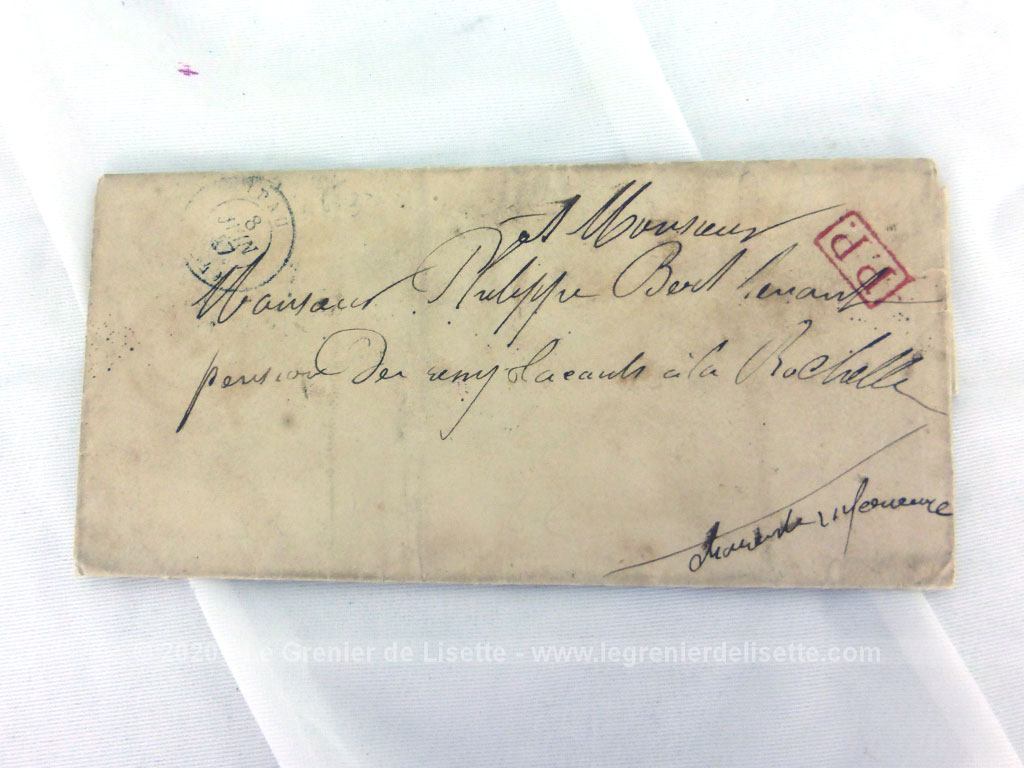 PAU
8
P.P.
A Monsieur
Monsieur Philippe Bert tenant
pension des remplacants à la Rochelle
Charente inferieure
© 2020 - Le Grenier de Lisette - www.legrenierdelisette.com